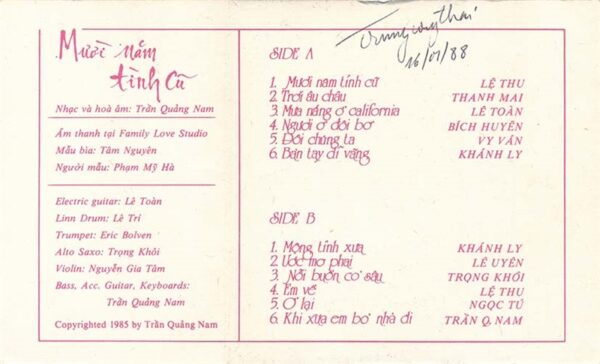 Mười năm
tình cũ
Nhạc và hoà âm: Trần Quảng Nam
Âm thanh tại Family Love Studio
Mẫu bìa: Tâm Nguyên
Người mẫu: Phạm Mỹ Hà
Electric guitar: Lê Toàn
Linn Drum: Lê Trí
Trumpet: Eric Bolven
Alto Saxo: Trọng Khôi
Violin: Nguyễn Gia Tâm
Bass, Acc. Guitar, Keyboards:
Trần Quảng Nam
Copyrighted 1985 by Trần Quảng Nam
16/01/88
SIDE A
1. Mười năm tình cũ LỆ THU
2. Trời âu châu THANH MAI
3. Mưa nắng ở california LÊ TOÀN
4. Người ở đôi bờ BÍCH HUYỀN
5. Đôi chúng ta VY VÂN
6. Bàn tay dĩ vãng KHÁNH LY
SIDE B
1. Mộng tình xưa KHÁNH LY
2. Ước mơ phai LÊ UYÊN
3. Nỗi buồn cơ sâu TRỌNG KHÔI
4. Em về LỆ THU
5. Ở lại NGỌC TÚ
6. Khi xưa em bỏ nhà đi TRẦN Q. NAM